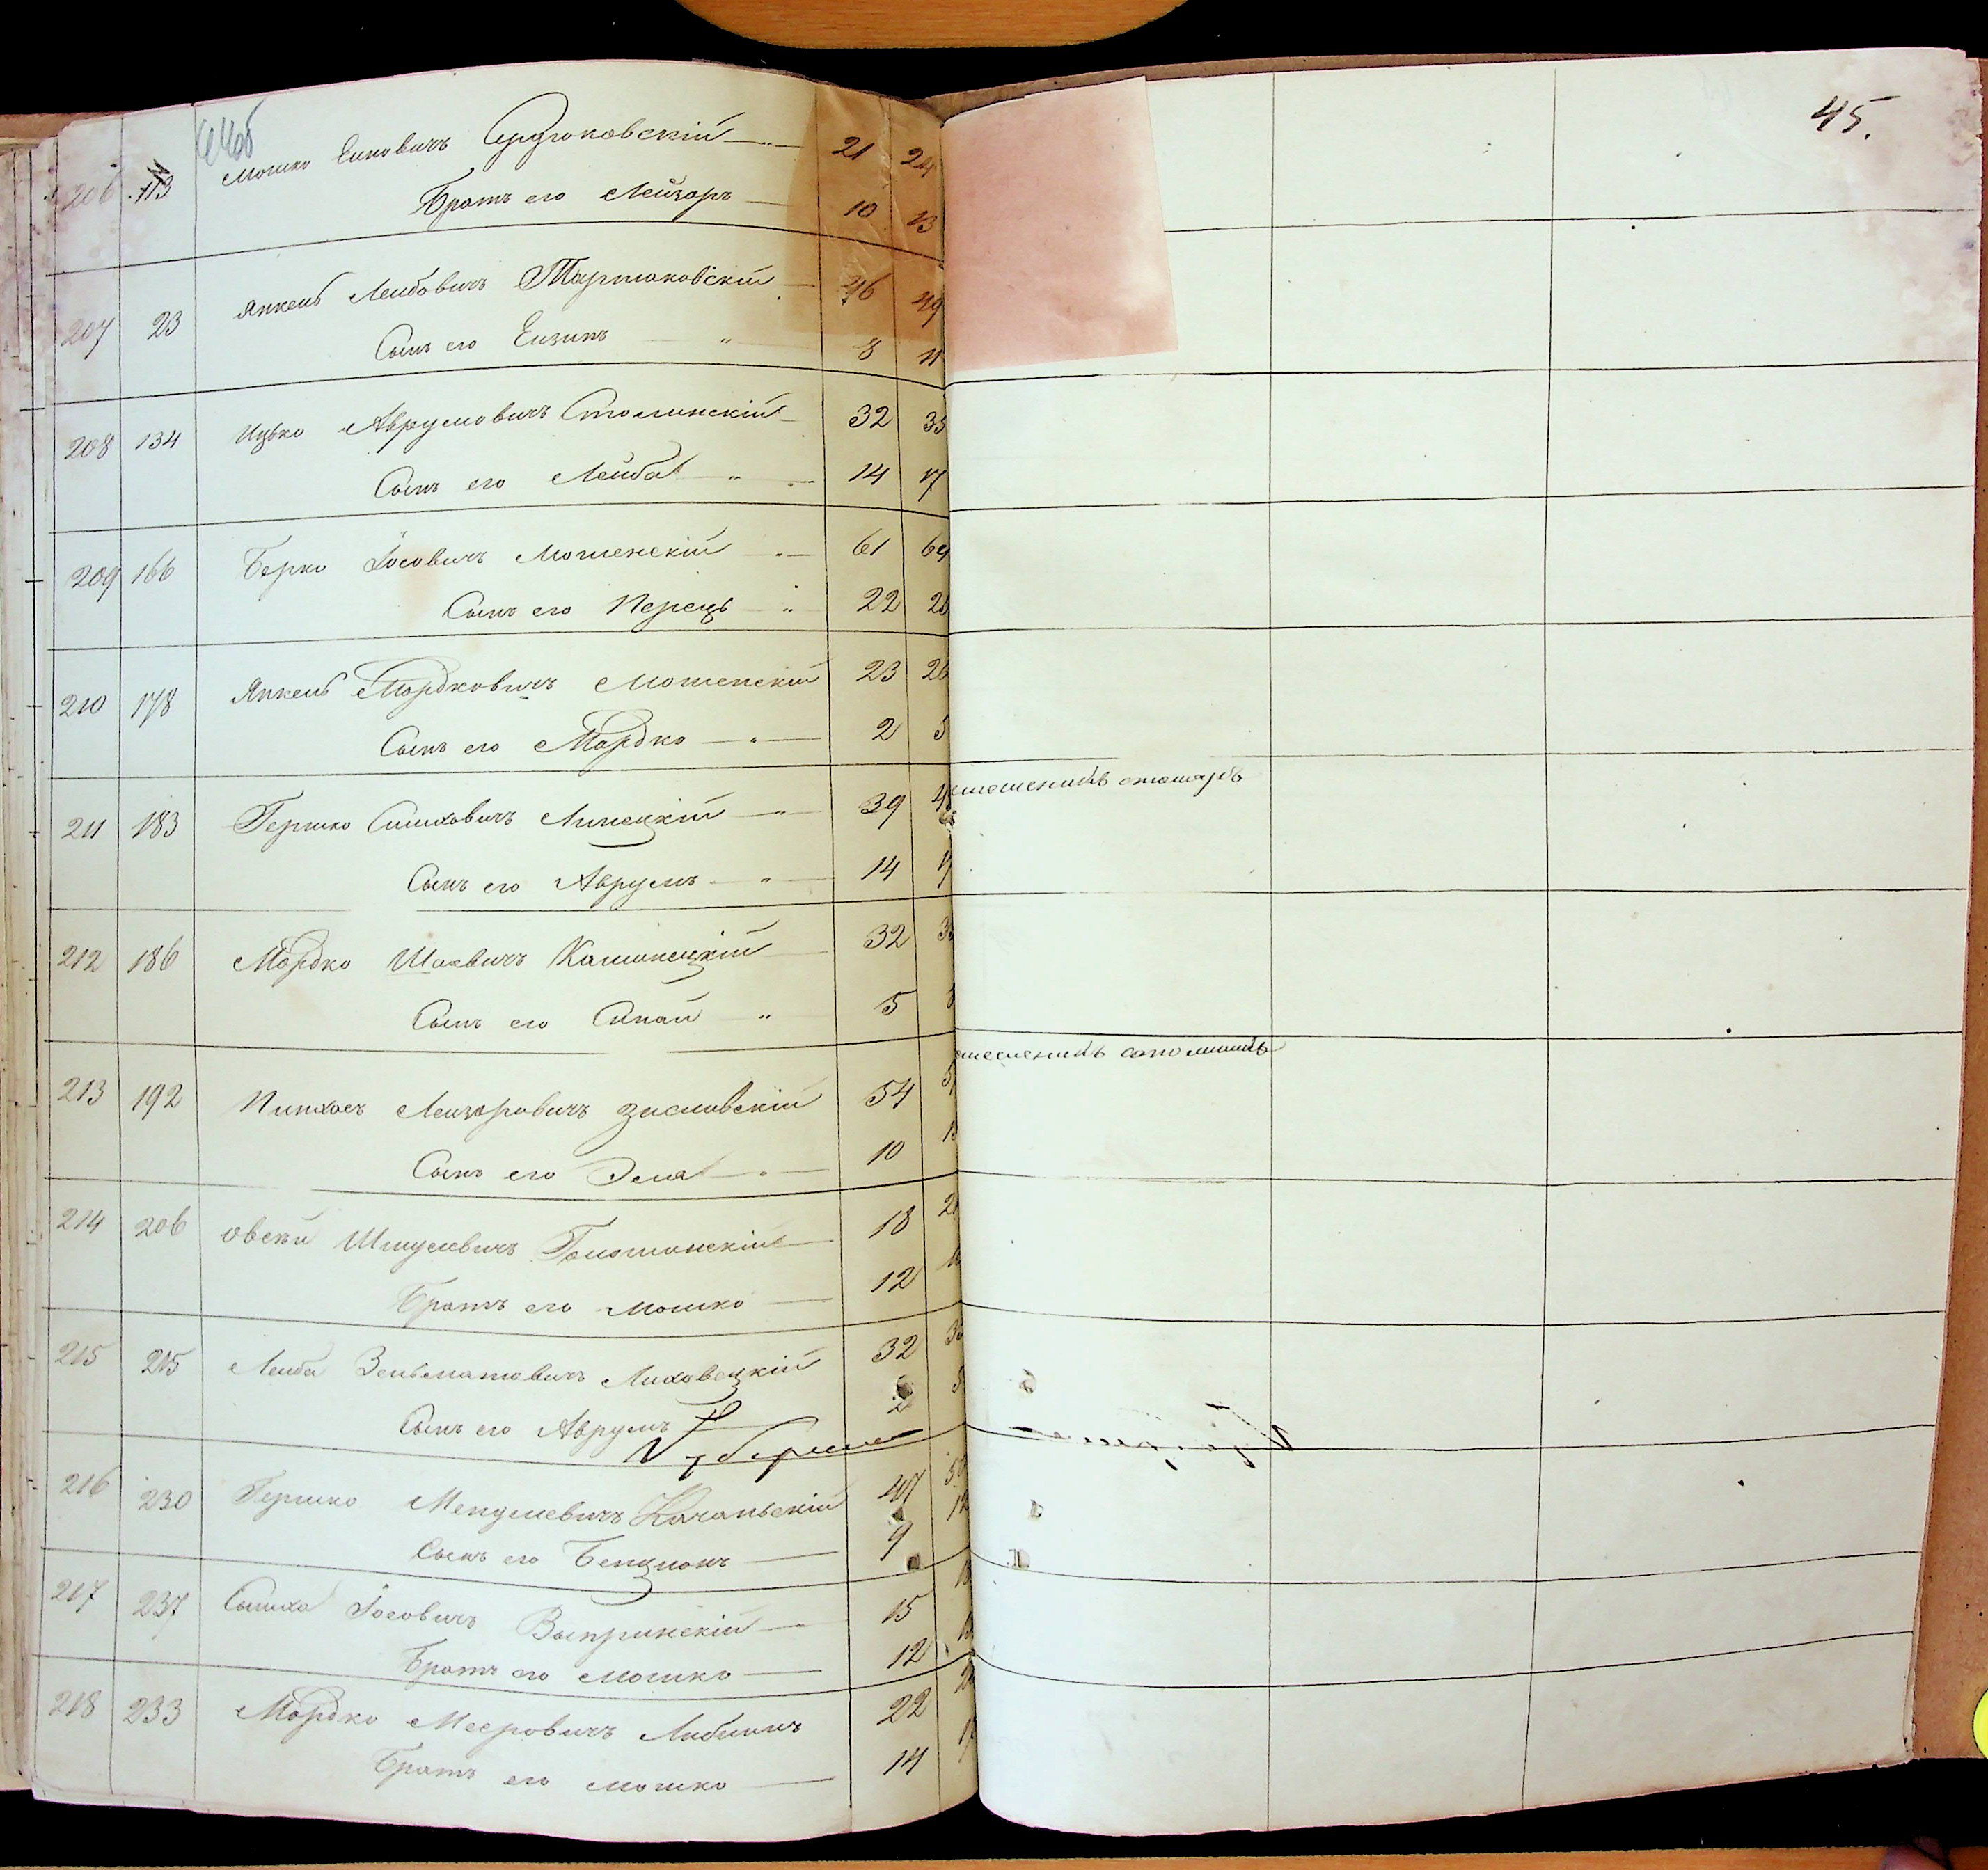 45.
44об
206 113 Мошко Еиновичъ 21 24
Братъ его Лейзоръ 10 13
207 23 Янкель Лейбовичъ Тартаковскій 46 49
Сынъ его Ейзикъ " 8 11
208 134 Ицько Аврумовичъ Столинскій 32 35
Сынъ его Лейба " 14 17
209 166 Берко Іосовичъ Мошенскій " 61 64
Сынъ его Перецъ " 22 25
210 178 Янкель Мордковичъ Мошенскій 23 26
Сынъ его Мордко " 2 5
211 183 Гершко Симховичъ Линецкій " 39
Сынъ его Аврумъ " 14
212 186 Мордко Шаевичъ Каменецкій 32
Сынъ его Синай " 5
213 192 Пинхасъ Лейзоровичъ Заславскій 54
Сынъ его Эля " 10
214 206 Овсей Шмулевичъ 18
Братъ его Мошко 12
215 215 Лейба Зельмановичъ Лиховецкій 32
Сынъ его Аврумъ 2
216 230 Гершко Менделевичъ 47
Сынъ его Бенціонъ 9
217 237 Симха Іосовичъ 15
Братъ его Мошко 12
218 233 Мордко Мееровичъ 22
Братъ его Мошко 14